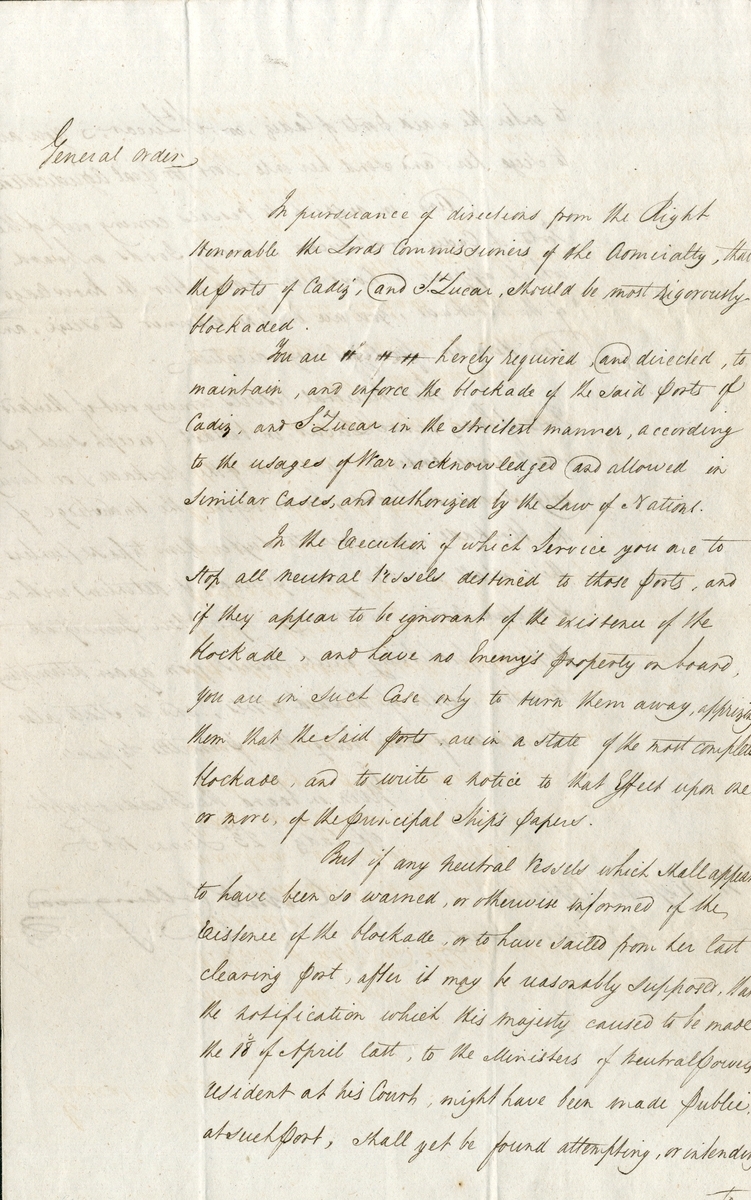 General Order
In pursuance of directions from the Right
Honorable the Lords Commissioners of the Admiralty, that
the Ports of Cadiz, and St. Lucar, should be most rigorously
blockaded.
You are " " " hereby required, and directed, to
maintain, and enforce the blockade of the said Ports of
Cadiz, and St. Lucar in the strictest manner, according
to the usages of War, acknowledged and allowed in
similar Cases, and authorized by the Law of Nations.
In the Execution of which Service you are to
stop all neutral Vessels destined to those Ports, and
if they appear to be ignorant of the existence of the
blockade, and have no Enemy's property on board,
you are in such Case only to turn them away, apprizing
them that the said Ports, are in a state of the most complete
blockade, and to write a notice to that Effect upon one
or more, of the Principal Ship's Papers.
But if any neutral Vessels which shall appear
to have been so warned, or otherwise informed of the
Existence of the blockade, or to have sailed from her last
clearing Port, after it may be reasonably supposed, that
the notification which His Majesty caused to be made
the 18th of April last, to the Ministers of neutral Powers
resident at his Court, might have been made Public
at such Port, shall yet be found attempting, or intending
To